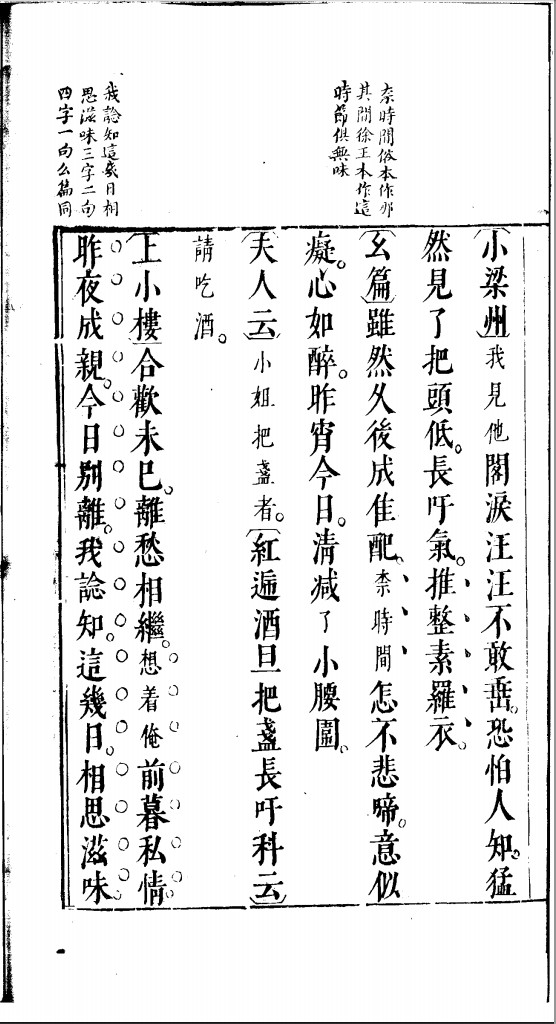 柰時間俗本作那
其間徐王本作這
時節俱無味
我諗知這幾日相
思滋味三字二句
四字一句幺篇同
〔小梁州〕我見他閣淚汪汪不敢垂。恐怕人知。猛
然見了把頭低。長吁氣。推整素羅衣。
〔幺篇〕雖然久後成佳配。柰時間怎不悲啼。意似
癡。心如醉。昨宵今日。清減了小腰圍。
〔夫人云〕小姐把盞者。〔紅遞酒旦把盞長吁科云〕
請吃酒。
〔上小樓〕合歡未已。離愁相繼。想着俺前暮私情。
昨夜成親。今日別離。我諗知。這幾日。相思滋味